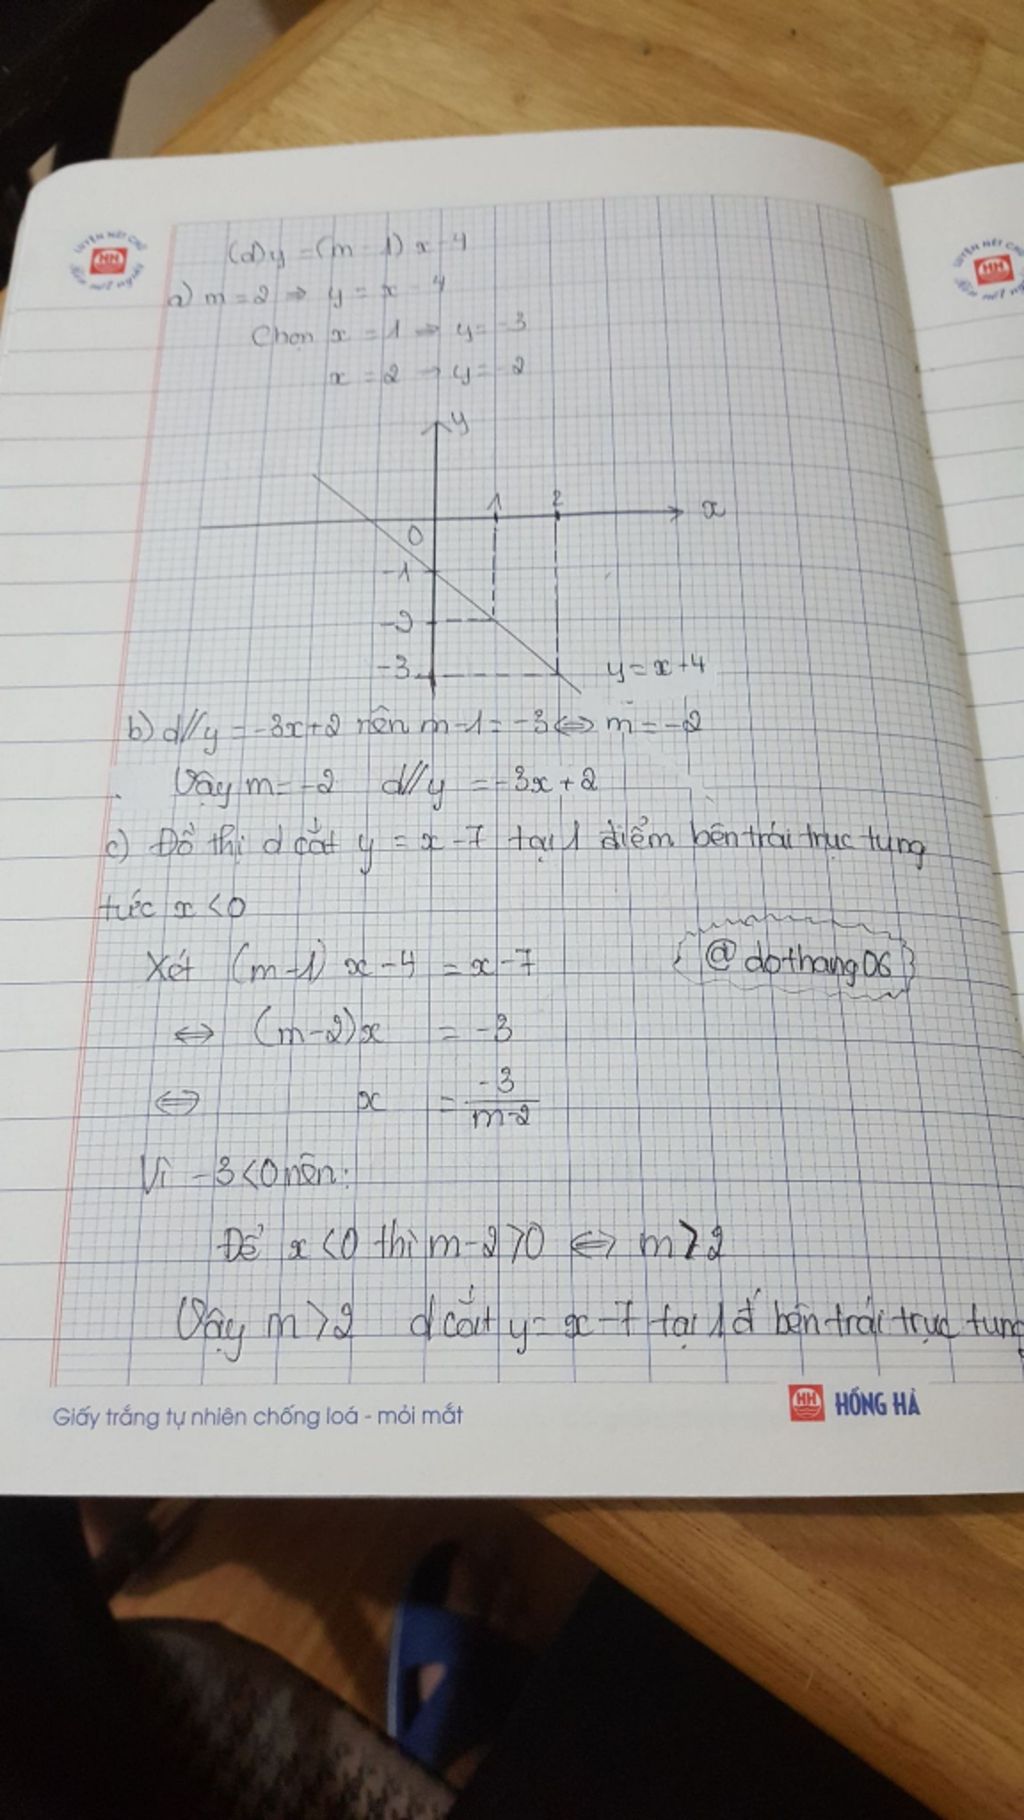 (d) y = (m - 1) x - 4
a) m = 2 ⇒ y = x - 4
Chọn x = 1 ⇒ y = -3
x = 2 → y = -2
y
1 2 x
0
-1
-2
-3
y = x + 4
b) d // y = -3x + 2 nên m - 1 = -3 ⇔ m = -2
Vậy m = -2 d // y = -3x + 2
c) Đồ thị d cắt y = x - 7 tại 1 điểm bên trái trục tung
tức x < 0
Xét (m - 1) x - 4 = x - 7
@dothang06
⇔ (m - 2)x = -3
⇔ x = -3/(m - 2)
Vì -3 < 0 nên:
Để x < 0 thì m - 2 > 0 ⇔ m > 2
Vậy m > 2 d cắt y = x - 7 tại 1 đ bên trái trục tung
Giấy trắng tự nhiên chống loá - mỏi mắt
HH HỒNG HÀ